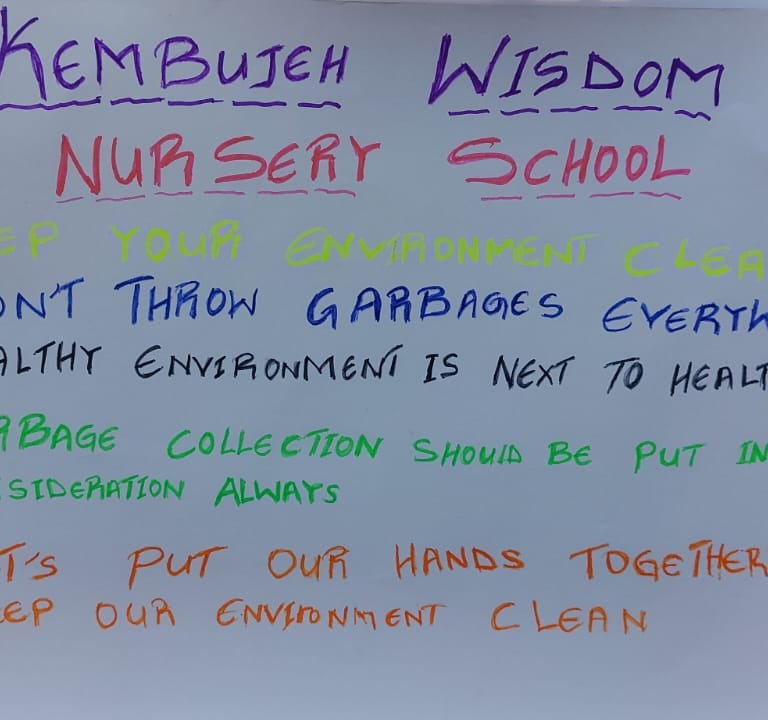 KEMBUJEH WISDOM
NURSERY SCHOOL
EP YOUR ENVIRONMENT CLEA
ON'T THROW GARBAGES EVERYW
ALTHY ENVIRONMENT IS NEXT TO HEALT
RBAGE COLLECTION SHOULD BE PUT IN
SIDERATION ALWAYS
T'S PUT OUR HANDS TOGETHER
EP OUR ENVIRONMENT CLEAN